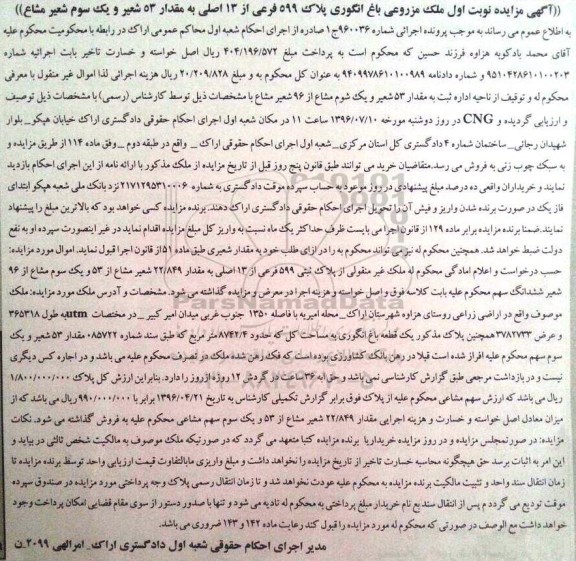 ((آگهی مزایده نوبت اول ملک مزروعی باغ انگوری پلاک ۵۹۹ فرعی از ۱۳ اصلی به مقدار ۵۳ شعیر و یک سوم شعیر مشاع))
به اطلاع عموم می رساند به موجب پرونده اجرائی شماره ۹۶۰۰۳۶ج۱ صادره از اجرای احکام شعبه اول محاکم عمومی اراک در رابطه با محکومیت محکوم علیه
آقای محمد بادکوبه هزاوه فرزند حسین که محکوم است به پرداخت مبلغ ۴۰۴/۱۹۶/۵۷۲ ریال اصل خواسته و خسارت تاخیر بابت اجرائیه شماره
۹۵۱۰۴۲۸۶۱۰۱۰۰۲۰۳ و شماره دادنامه ۹۴۰۹۹۷۸۶۱۰۱۰۰۹۸۹ به عنوان کل محکوم به و مبلغ ۲۰/۲۰۹/۸۲۸ ریال هزینه اجرائی لذا اموال غیر منقول با معرفی
محکوم له و توقیف از ناحیه اداره ثبت به مقدار ۵۳ شعیر و یک سوم مشاع از ۹۶ شعیر مشاع با مشخصات ذیل توسط کارشناس (رسمی) با مشخصات ذیل توصیف
و ارزیابی گردیده و CNG در روز دوشنبه مورخه ۱۳۹۶/۰۷/۱۰ ساعت ۱۱ در مکان شعبه اول اجرای احکام حقوقی دادگستری اراک خیابان هپکو_ بلوار
شهیدان رجائی_ ساختمان شماره ۴ دادگستری کل استان مرکزی_ شعبه اول اجرای احکام حقوقی اراک _ واقع در طبقه دوم _وفق ماده ۱۱۴ از طریق مزایده و
به سبک چوب زنی به فروش می رسد.متقاضیان خرید می توانند طبق قانون پنج روز قبل از تاریخ مزایده از ملک مذکور با ارائه نامه از این اجرای احکام بازدید
نمایند و خریداران واقعی ده درصد مبلغ پیشنهادی در روز موعود به حساب سپرده موقت دادگستری به شماره ۲۱۷۱۲۹۵۳۱۰۰۰۶ نزد بانک ملی شعبه هپکو ابتدای
فاز یک در صورت برنده شدن واریز و فیش آن را تحویل اجرای احکام حقوقی دادگستری اراک دهند. برنده مزایده کسی خواهد بود که بالاترین مبلغ را پیشنهاد
نمایند.ضمنا برنده مزایده برابر ماده ۱۲۹ از قانون اجرا می بایست ظرف حداکثر یک ماه نسبت به واریز کل مبلغ مزایده اقدام نماید در غیر اینصورت سپرده او به نفع
دولت ضبط خواهد شد. همچنین محکوم له نیز می تواند محکوم به را در ازای طلب خود به مقدار شعیری طبق ماده ۵۱از قانون اجرا قبول نماید. اموال مورد مزایده:
حسب درخواست و اعلام آمادگی محکوم له ملک غیر منقولی از پلاک ثبتی ۵۹۹ فرعی از ۱۳ اصلی به مقدار ۲۲/۸۴۹ شعیر مشاع از ۵۳ و یک سوم مشاع از ۹۶
شعیر ششدانگ سهم محکوم علیه بابت کلاسه فوق و اصل خواسته و هزینه اجرا در معرض و مزایده گذاشته می شود. مشخصات و آدرس ملک مورد مزایده: ملک
موصوف واقع در اراضی زراعی روستای هزاوه شهرستان اراک_ محله امیریه با فاصله ۱۳۵۰ جنوب غربی میدان امیر کبیر _ در مختصات utm به طول ۳۶۵۳۱۸
و عرض ۳۷۸۲۷۳۳ همچنین پلاک مذکور یک قطعه باغ انگوری به مساحت کل که حدود ۸۷۴۲/۴ متر مربع که طبق سند شماره ۰۸۵۷۲۲ مقدار ۵۳ شعیر و یک
سوم سهم محکوم علیه افراز شده است قبلا در رهن بانک کشاورزی بوده است که فک رهن شده ملک در تصرف محکوم علیه می باشد و در اجاره کس دیگری
نیست و در بازداشت مرجعی طبق گزارش کارشناسی نمی باشد و حق ابه ۳۶ ساعت در گردش ۱۲ روزه از رودبار دارد. بنابراین ارزش کل پلاک ۱/۸۰۰/۰۰۰/۰۰۰
ریال می باشد که ارزش سهم مشاعی محکوم علیه از پلاک فوق برابر گزارش تکمیلی کارشناس به تاریخ ۱۳۹۶/۰۴/۲۱ برابر با ۹۹۰/۰۰۰/۰۰۰ ریال می باشد که از
میزان معادل اصل خواسته و خسارت و هزینه اجرایی مقدار ۲۲/۸۴۹ شعیر مشاع از ۵۳ و یک سوم سهم مشاعی محکوم علیه به فروش گذاشته می شود. نکات
مزایده: در صورتمجلس مزایده و در روز مزایده خریدار یا برنده مزایده کتبا متعهد می گردد که در صورتیکه ملک موصوف به مالکیت شخص ثالثی در بیاید و
این امر به اثبات برسد حق هیچگونه محاسبه خسارت تاخیر از تاریخ مزایده را نخواهد داشت و مبلغ واریزی مابالتفاوت قیمت ارزیابی واحد توسط برنده مزایده تا
زمان انتقال سند واحد و تثبیت مالکیت برنده مزایده به محکوم علیه عودت نخواهد شد و تا زمان انتقال رسمی پلاک وجه پرداختی مورد مزایده در صندوق سپرده
موقت تودیع می گردد م پس از انتقال سند به نام خریدار مبلغ پرداختی به محکوم له تادیه می شود و تنها با صدور دستور از سوی مقام قضایی امکان پرداخت وجود
خواهد داشت مع الوصف در صورتی که محکوم له مورد مزایده را قبول کند رعایت ماده ۱۴۲ و ۱۴۳ ضروری می باشد.
مدیر اجرای احکام حقوقی شعبه اول دادگستری اراک_ امرالهی ۲۰۹۹_ن
ParsNamadData